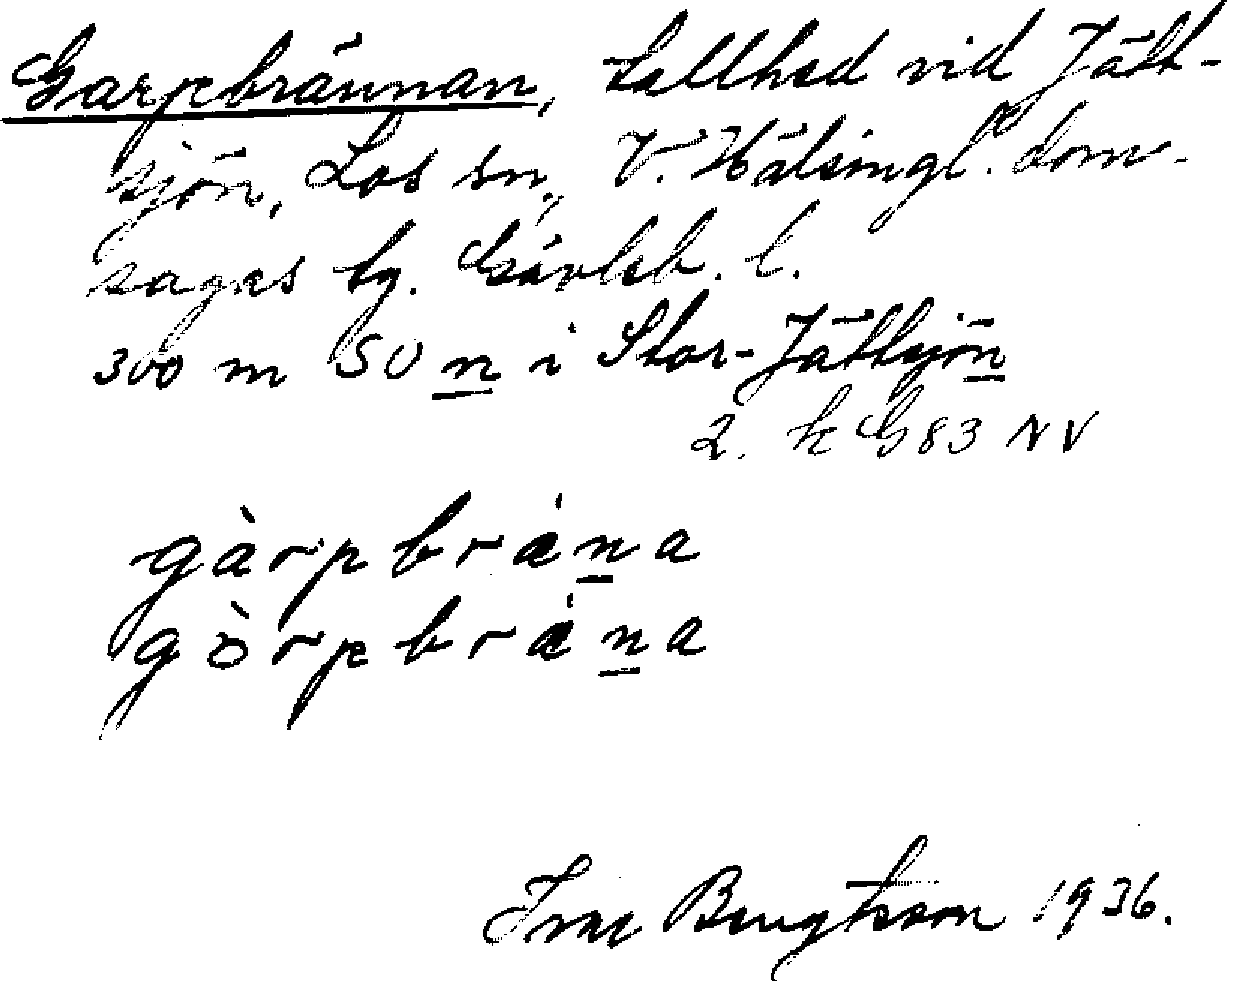 Garpebrännan, tallhed vid Jätt-
sjön, Los sn, V. Hälsingl. dom-
sagas tg. Gävleb. l.
300 m SO n i Stor-Jättsjön
2. k G83 NV
gàrpbrǽna
gòrpbrǽna
Bengtsson 1936.